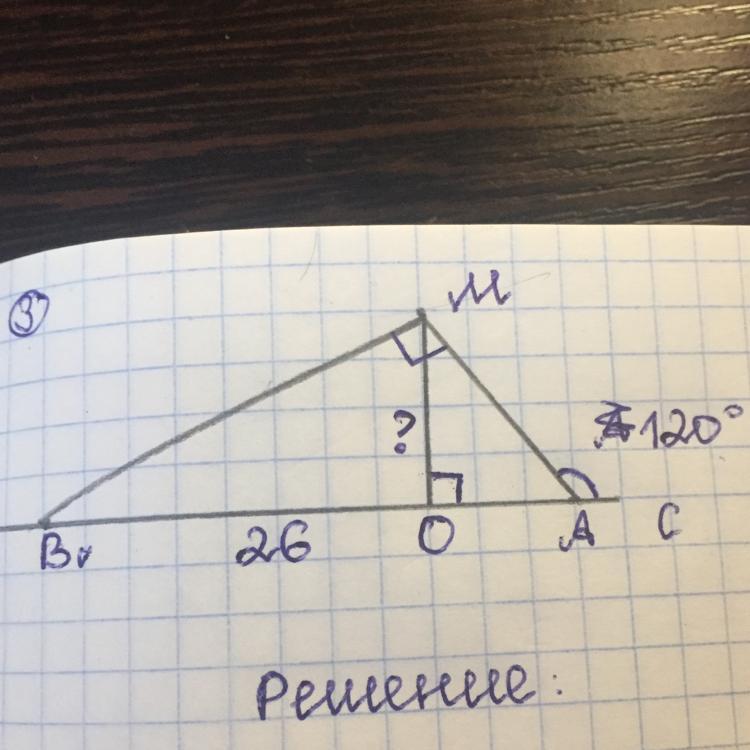 3
М
?
120°
В
26
О
А
С
Решение: